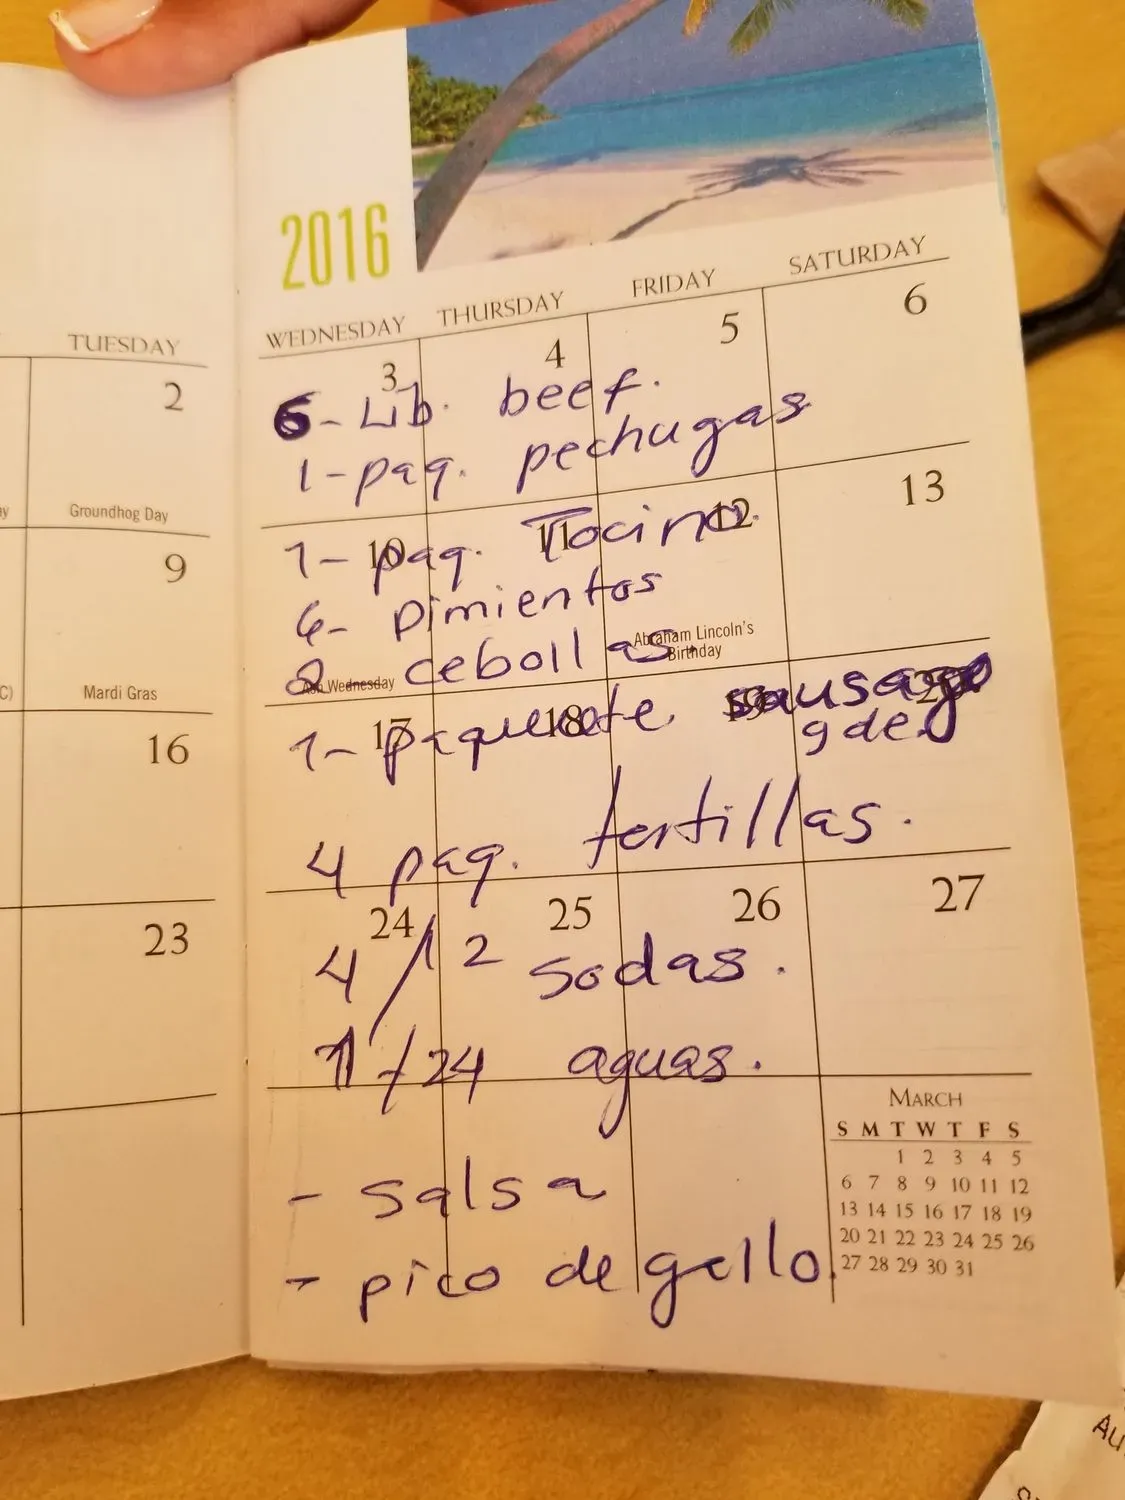 2016
TUESDAY WEDNESDAY THURSDAY FRIDAY SATURDAY
2 3 4 5 6
6- Lib. beef.
1-paq. pechugas
Groundhog Day
9 10 11 12 13
1- paq. Tocino.
6- pimientos
Abraham Lincoln's
Birthday
2 cebollas.
Mardi Gras Ash Wednesday
16 17 18 19 20
1- paquete sausage
gde.
4 paq. tortillas.
23 24 25 26 27
4/12 sodas.
1/24 aguas.
- salsa
- pico de gallo.
MARCH
S M T W T F S
1 2 3 4 5
6 7 8 9 10 11 12
13 14 15 16 17 18 19
20 21 22 23 24 25 26
27 28 29 30 31